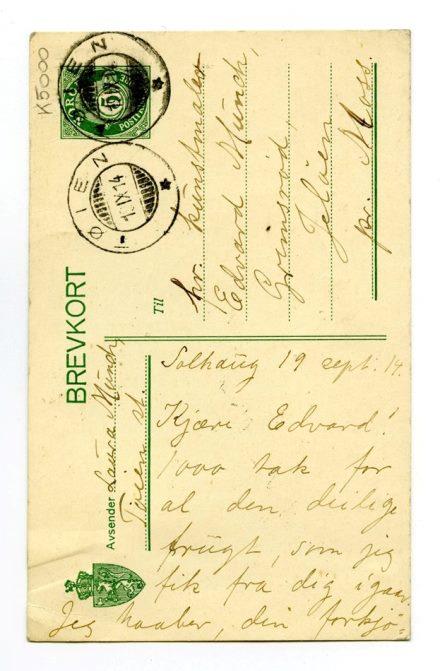 K5000
NORGE
5
POSTFRIM
ØIEN
19 IX 14
ØIEN
19 IX 14
BREVKORT
Til
hr. kunstmaler
Edvard Munch,
Grimsrød,
Jeløen
pr. Moss.
Avsender Laura Munch,
Tøien st.
Solhaug 19 sept. 14.
Kjære Edvard!
1000 tak for
al den deilige
frugt, som jeg
fik fra dig igaar.
Jeg haaber, din forkjø-